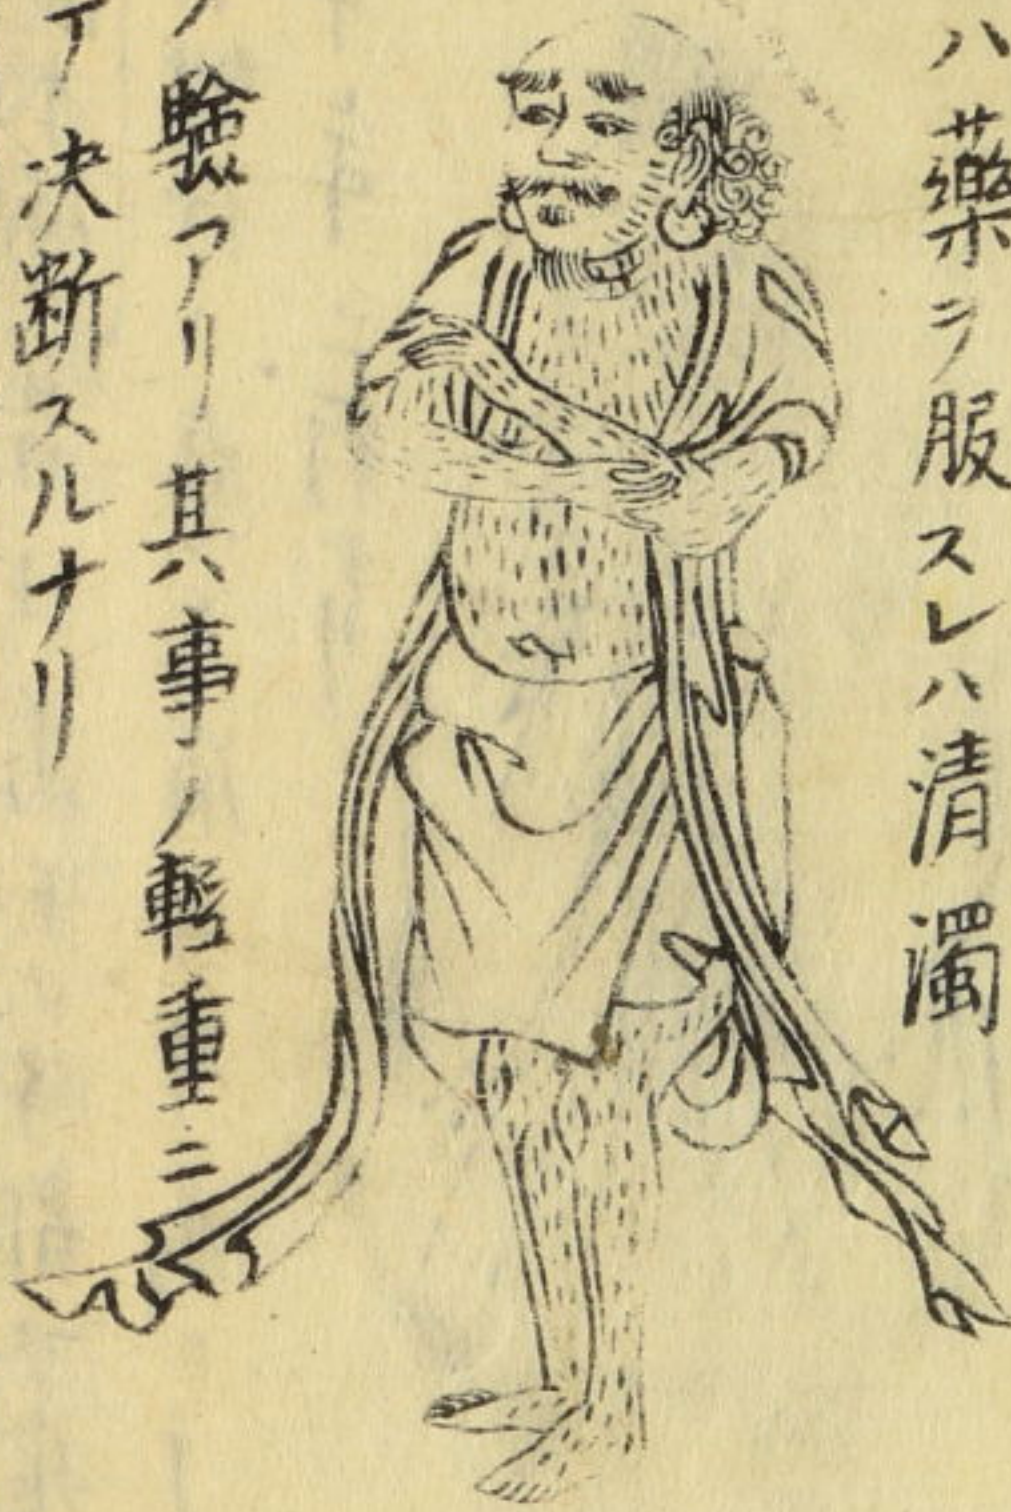 ハ藥ヲ服スレハ清濁
ノ驗アリ其事ノ輕重ニ
テ决断スルナリ